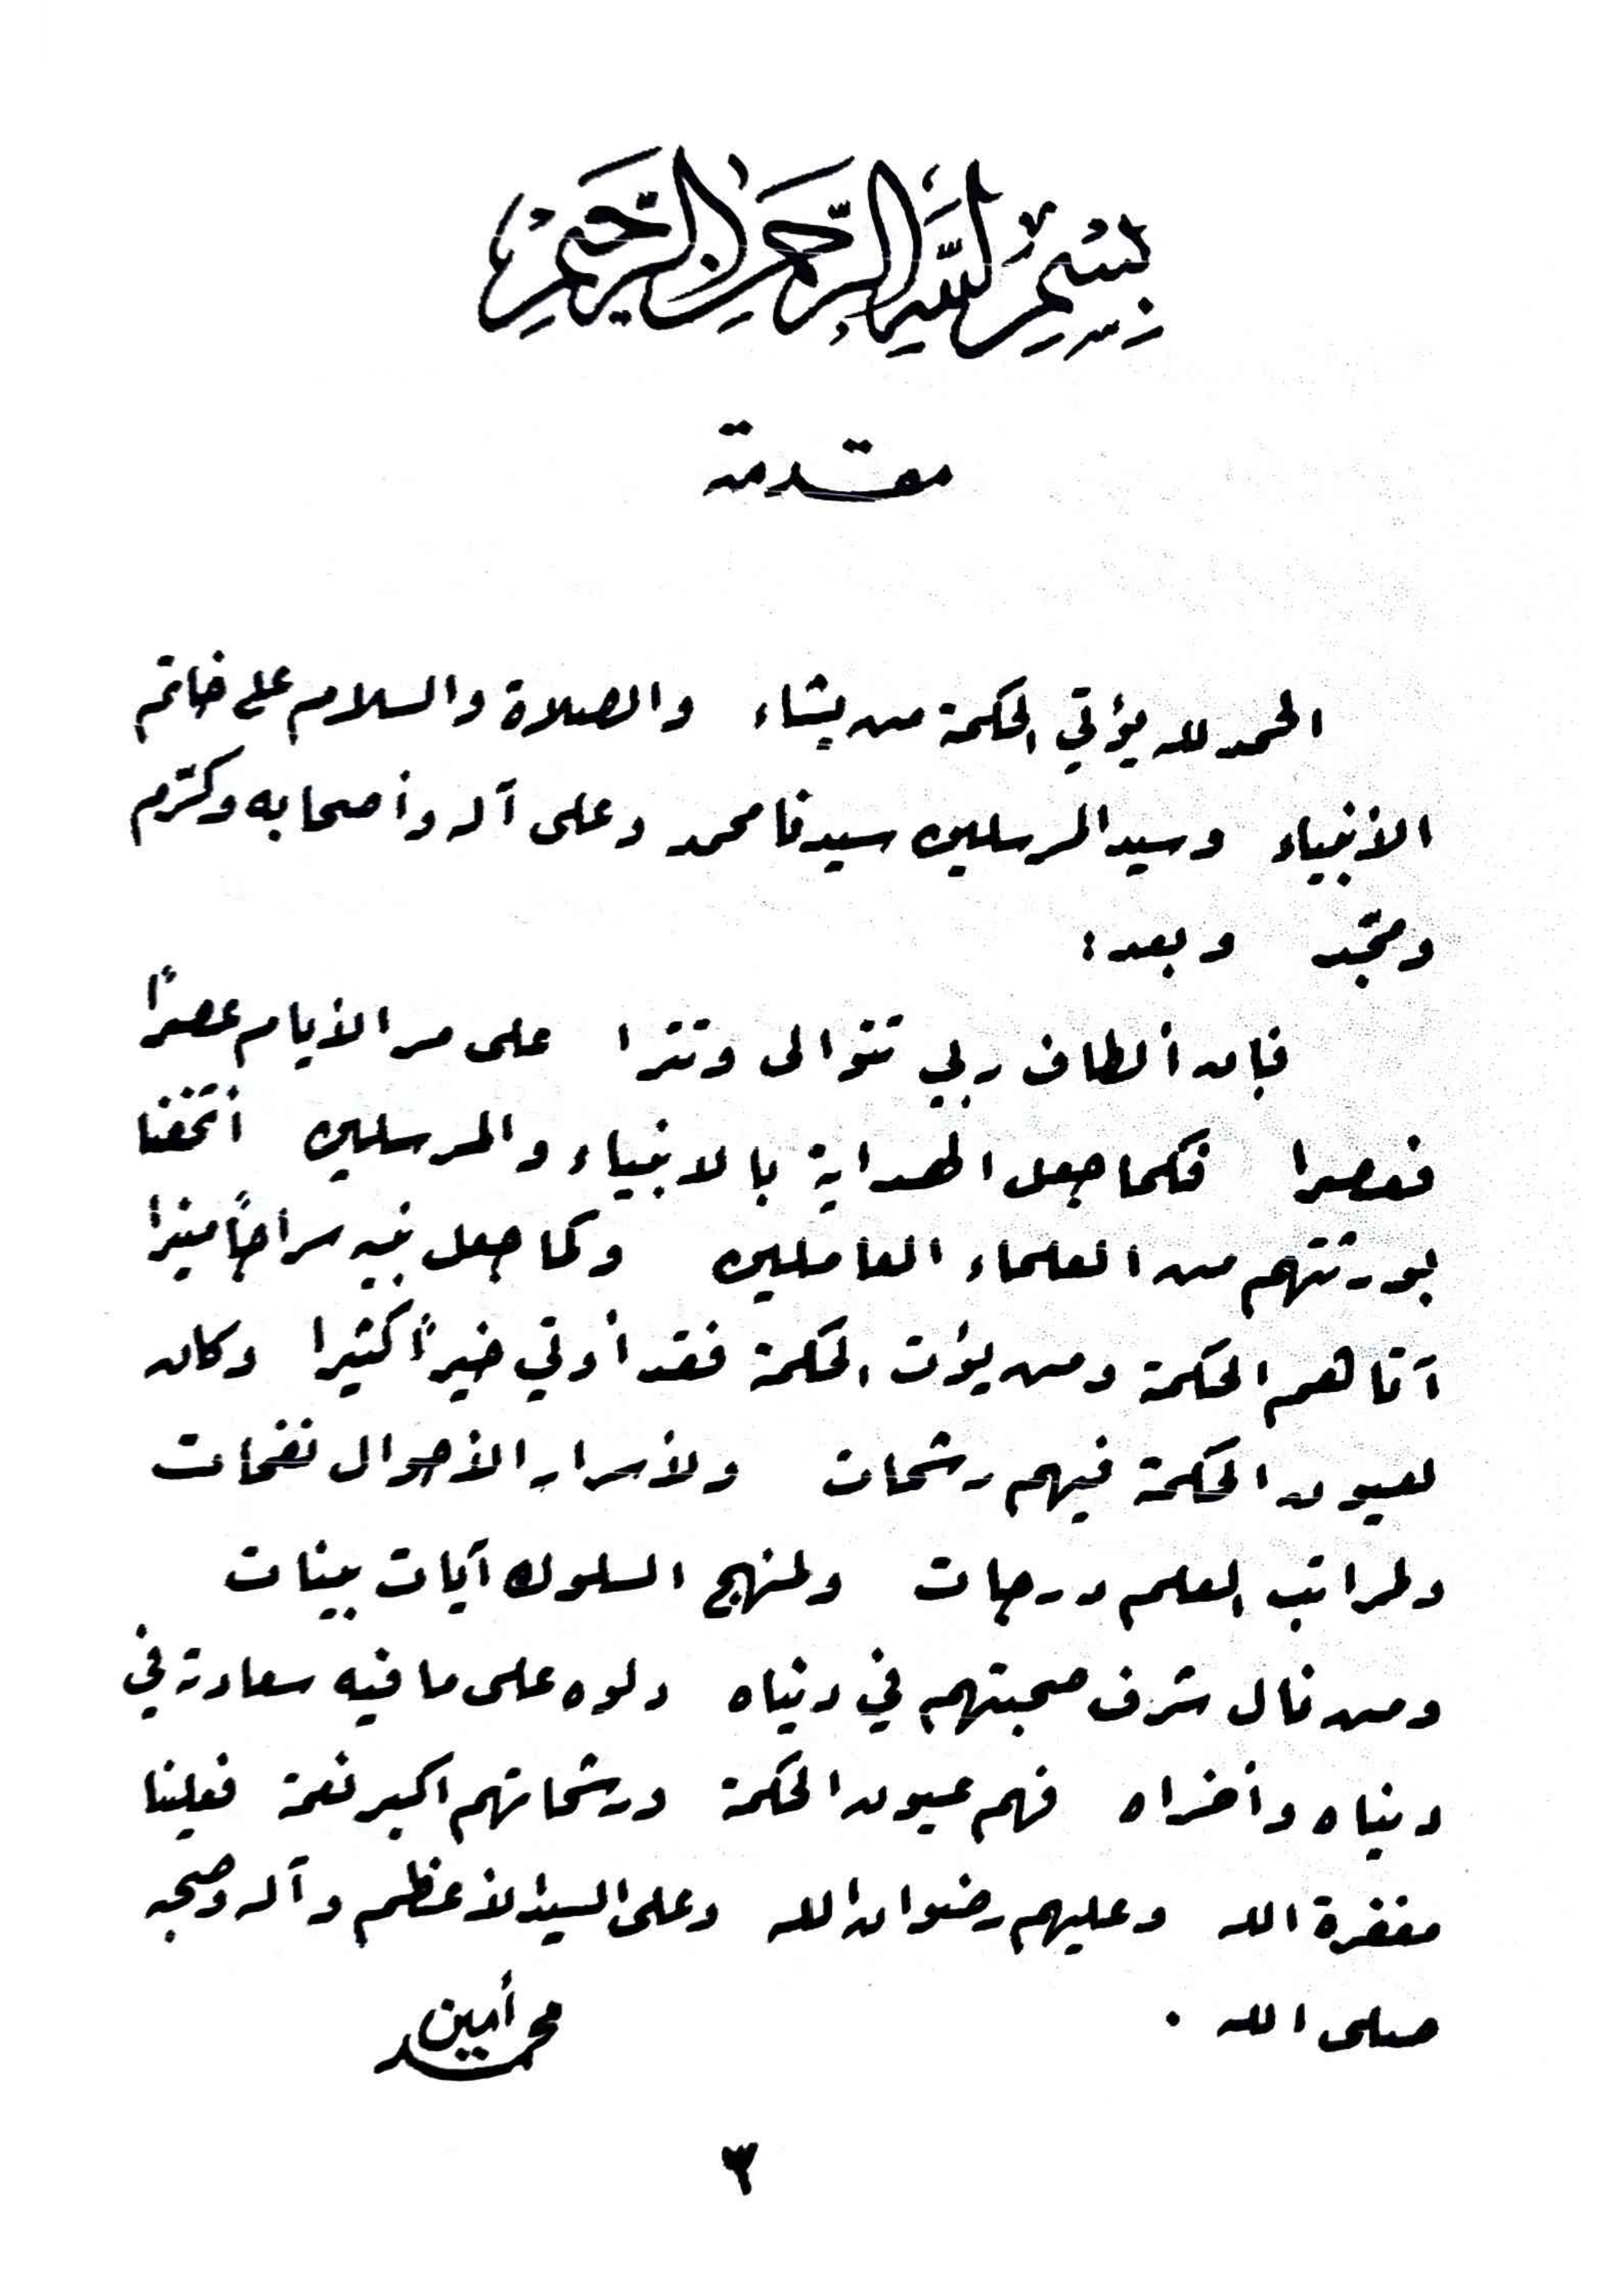 بسم الله الرحمن الرحيم
مقدمة
الحمد لله يؤتي الحكمة من يشاء والصلاة والسلام على خاتم
الأنبياء وسيد المرسلين سيدنا محمد وعلى آله وأصحابه وكرّم
ومجّد وبعد:
فإن ألطاف ربي تتوالى وتترا على مر الأيام عصراً
فعصرا فكما جعل الهداية بالانبياء والمرسلين أتحفنا
بورثتهم من العلماء العاملين وكما جعل نبيه سراجاً منيرا
آتاهم الحكمة ومن يؤت الحكمة فقد أوتي خيراً كثيرا وكان
لعيون الحكمة فيهم رشحات ولأسرار الأحوال نفحات
ولمراتب العلم درجات ولمنهج السلوك آيات بينات
ومن نال شرف صحبتهم في دنياه دلوه على ما فيه سعادة في
دنياه وأخراه فهم عيون الحكمة ورشحاتهم اكبر نعمة فعلينا
مغفرة الله وعليهم رضوان الله وعلى السيد الأعظم وآله وصحبه
صلى الله .
محمد أمين
٣